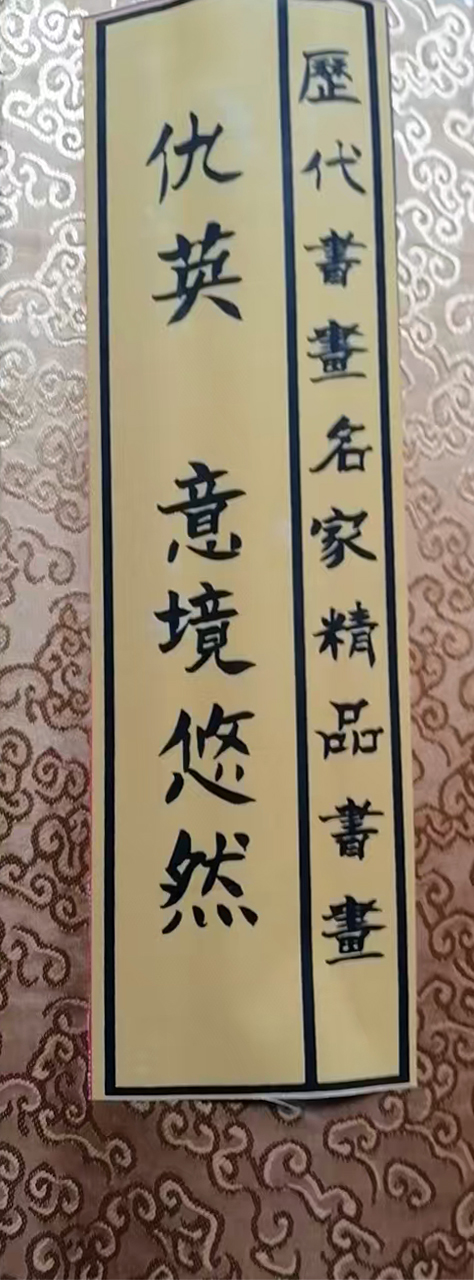 歷代書畫名家精品書畫
仇英 意境悠然